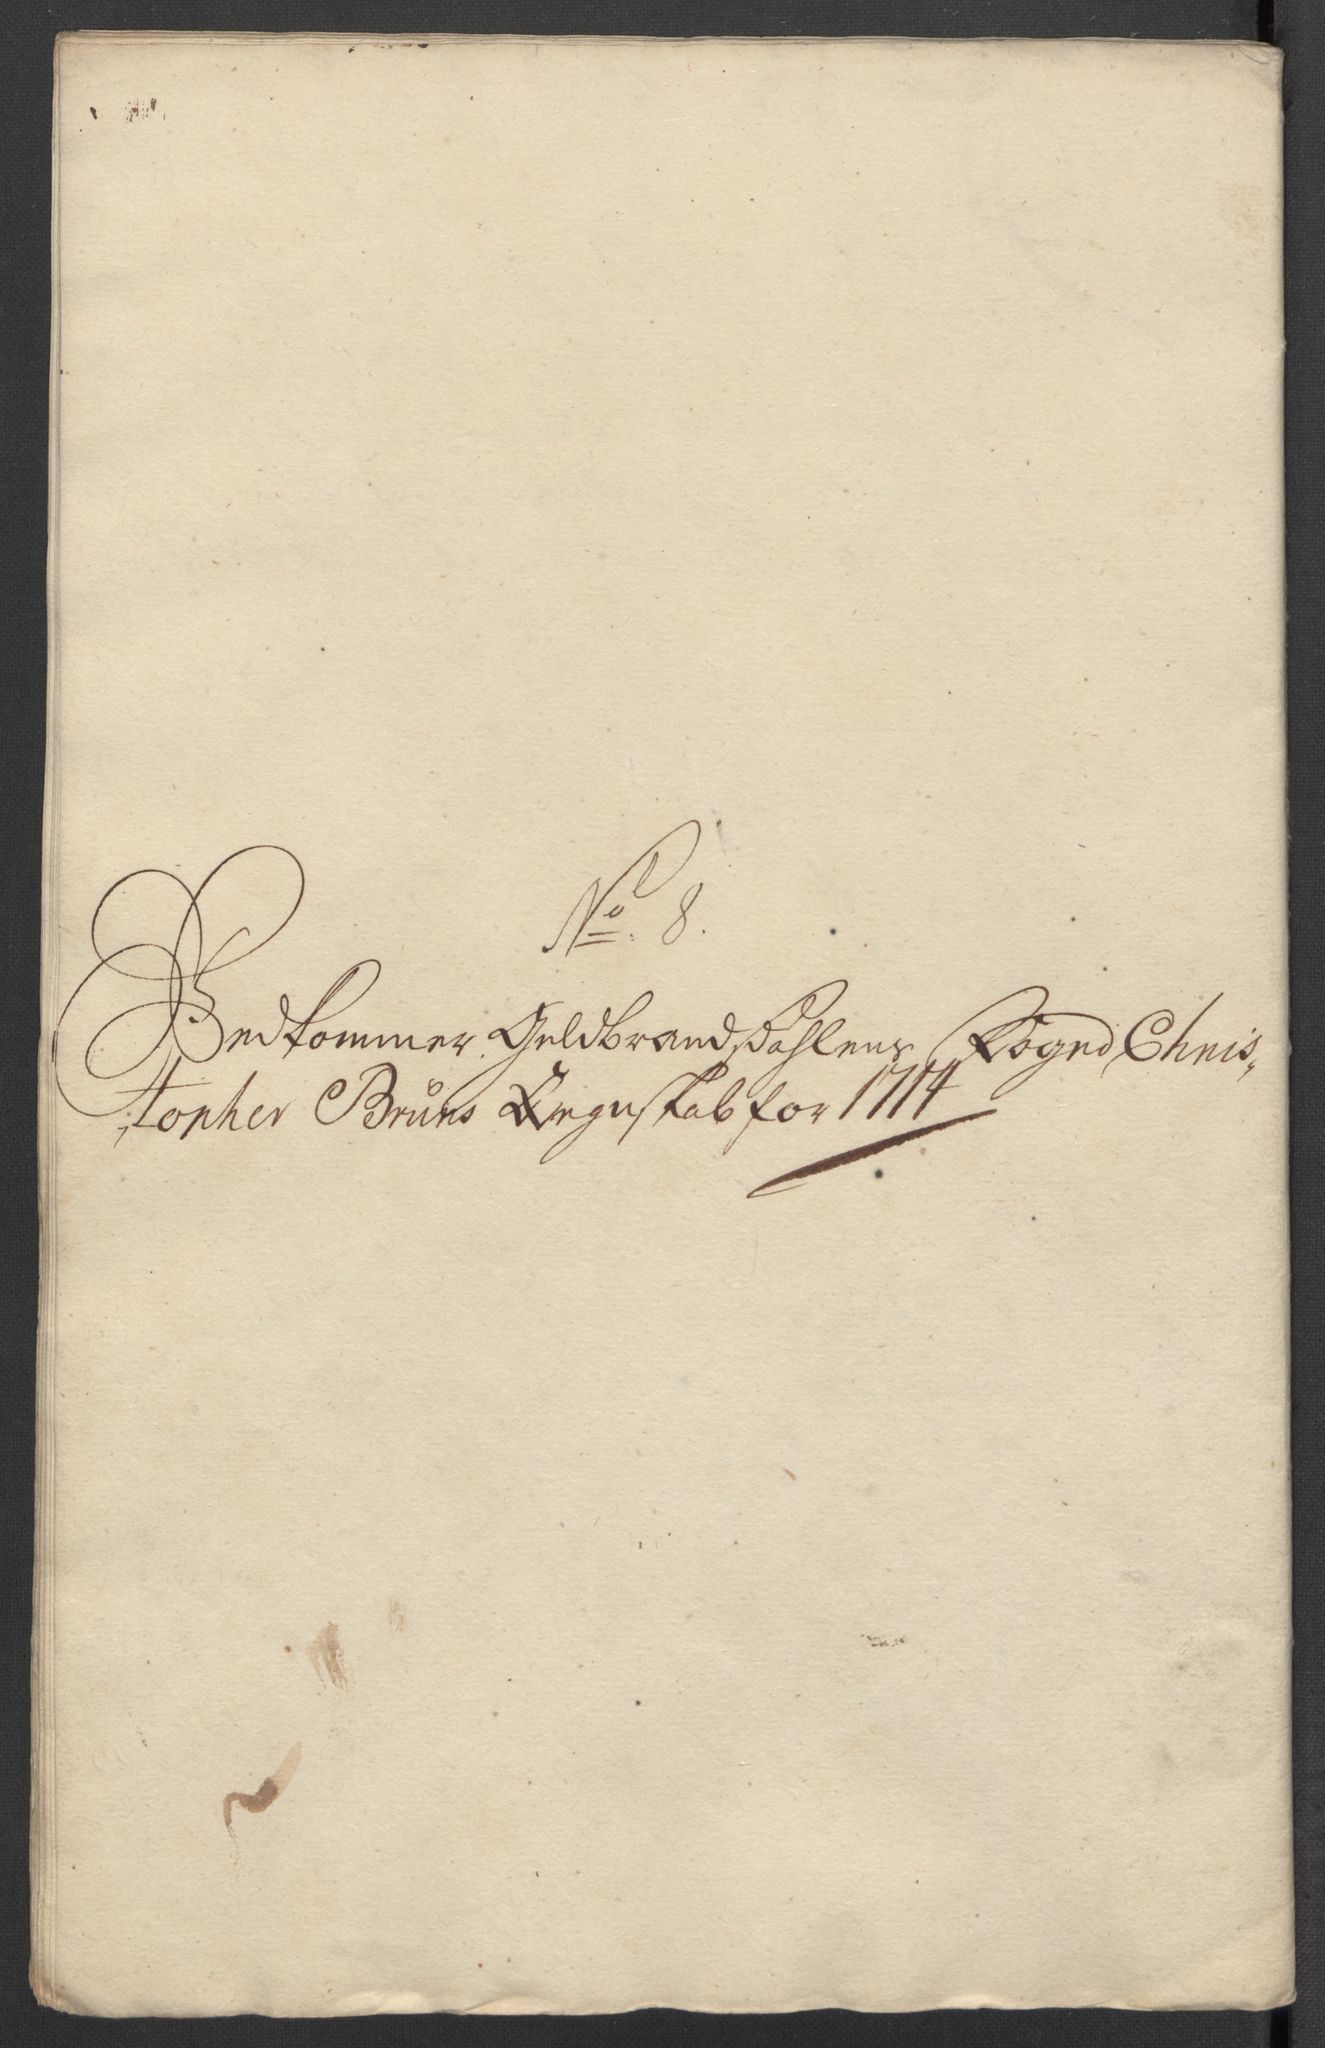 No. 8.
Vedkommer Guldbrandsdahlens Foged Chris,
topher Bruns Regnskab for 1714